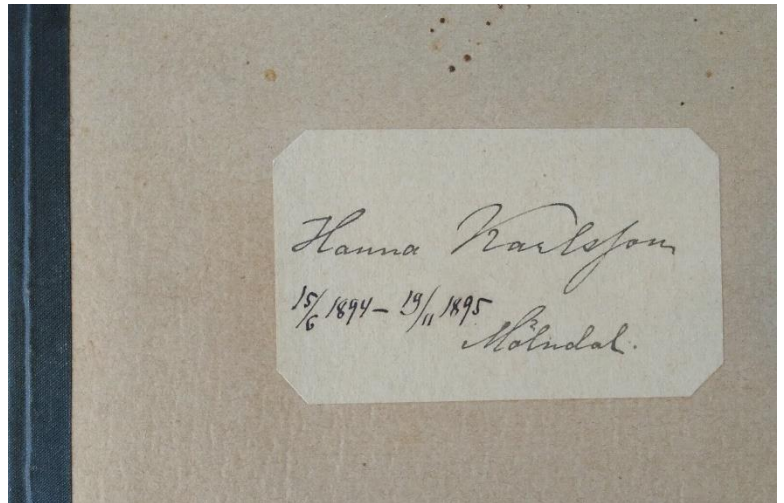 Hanna Karlsson
15/6 1894 – 19/11 1895
Mölndal.